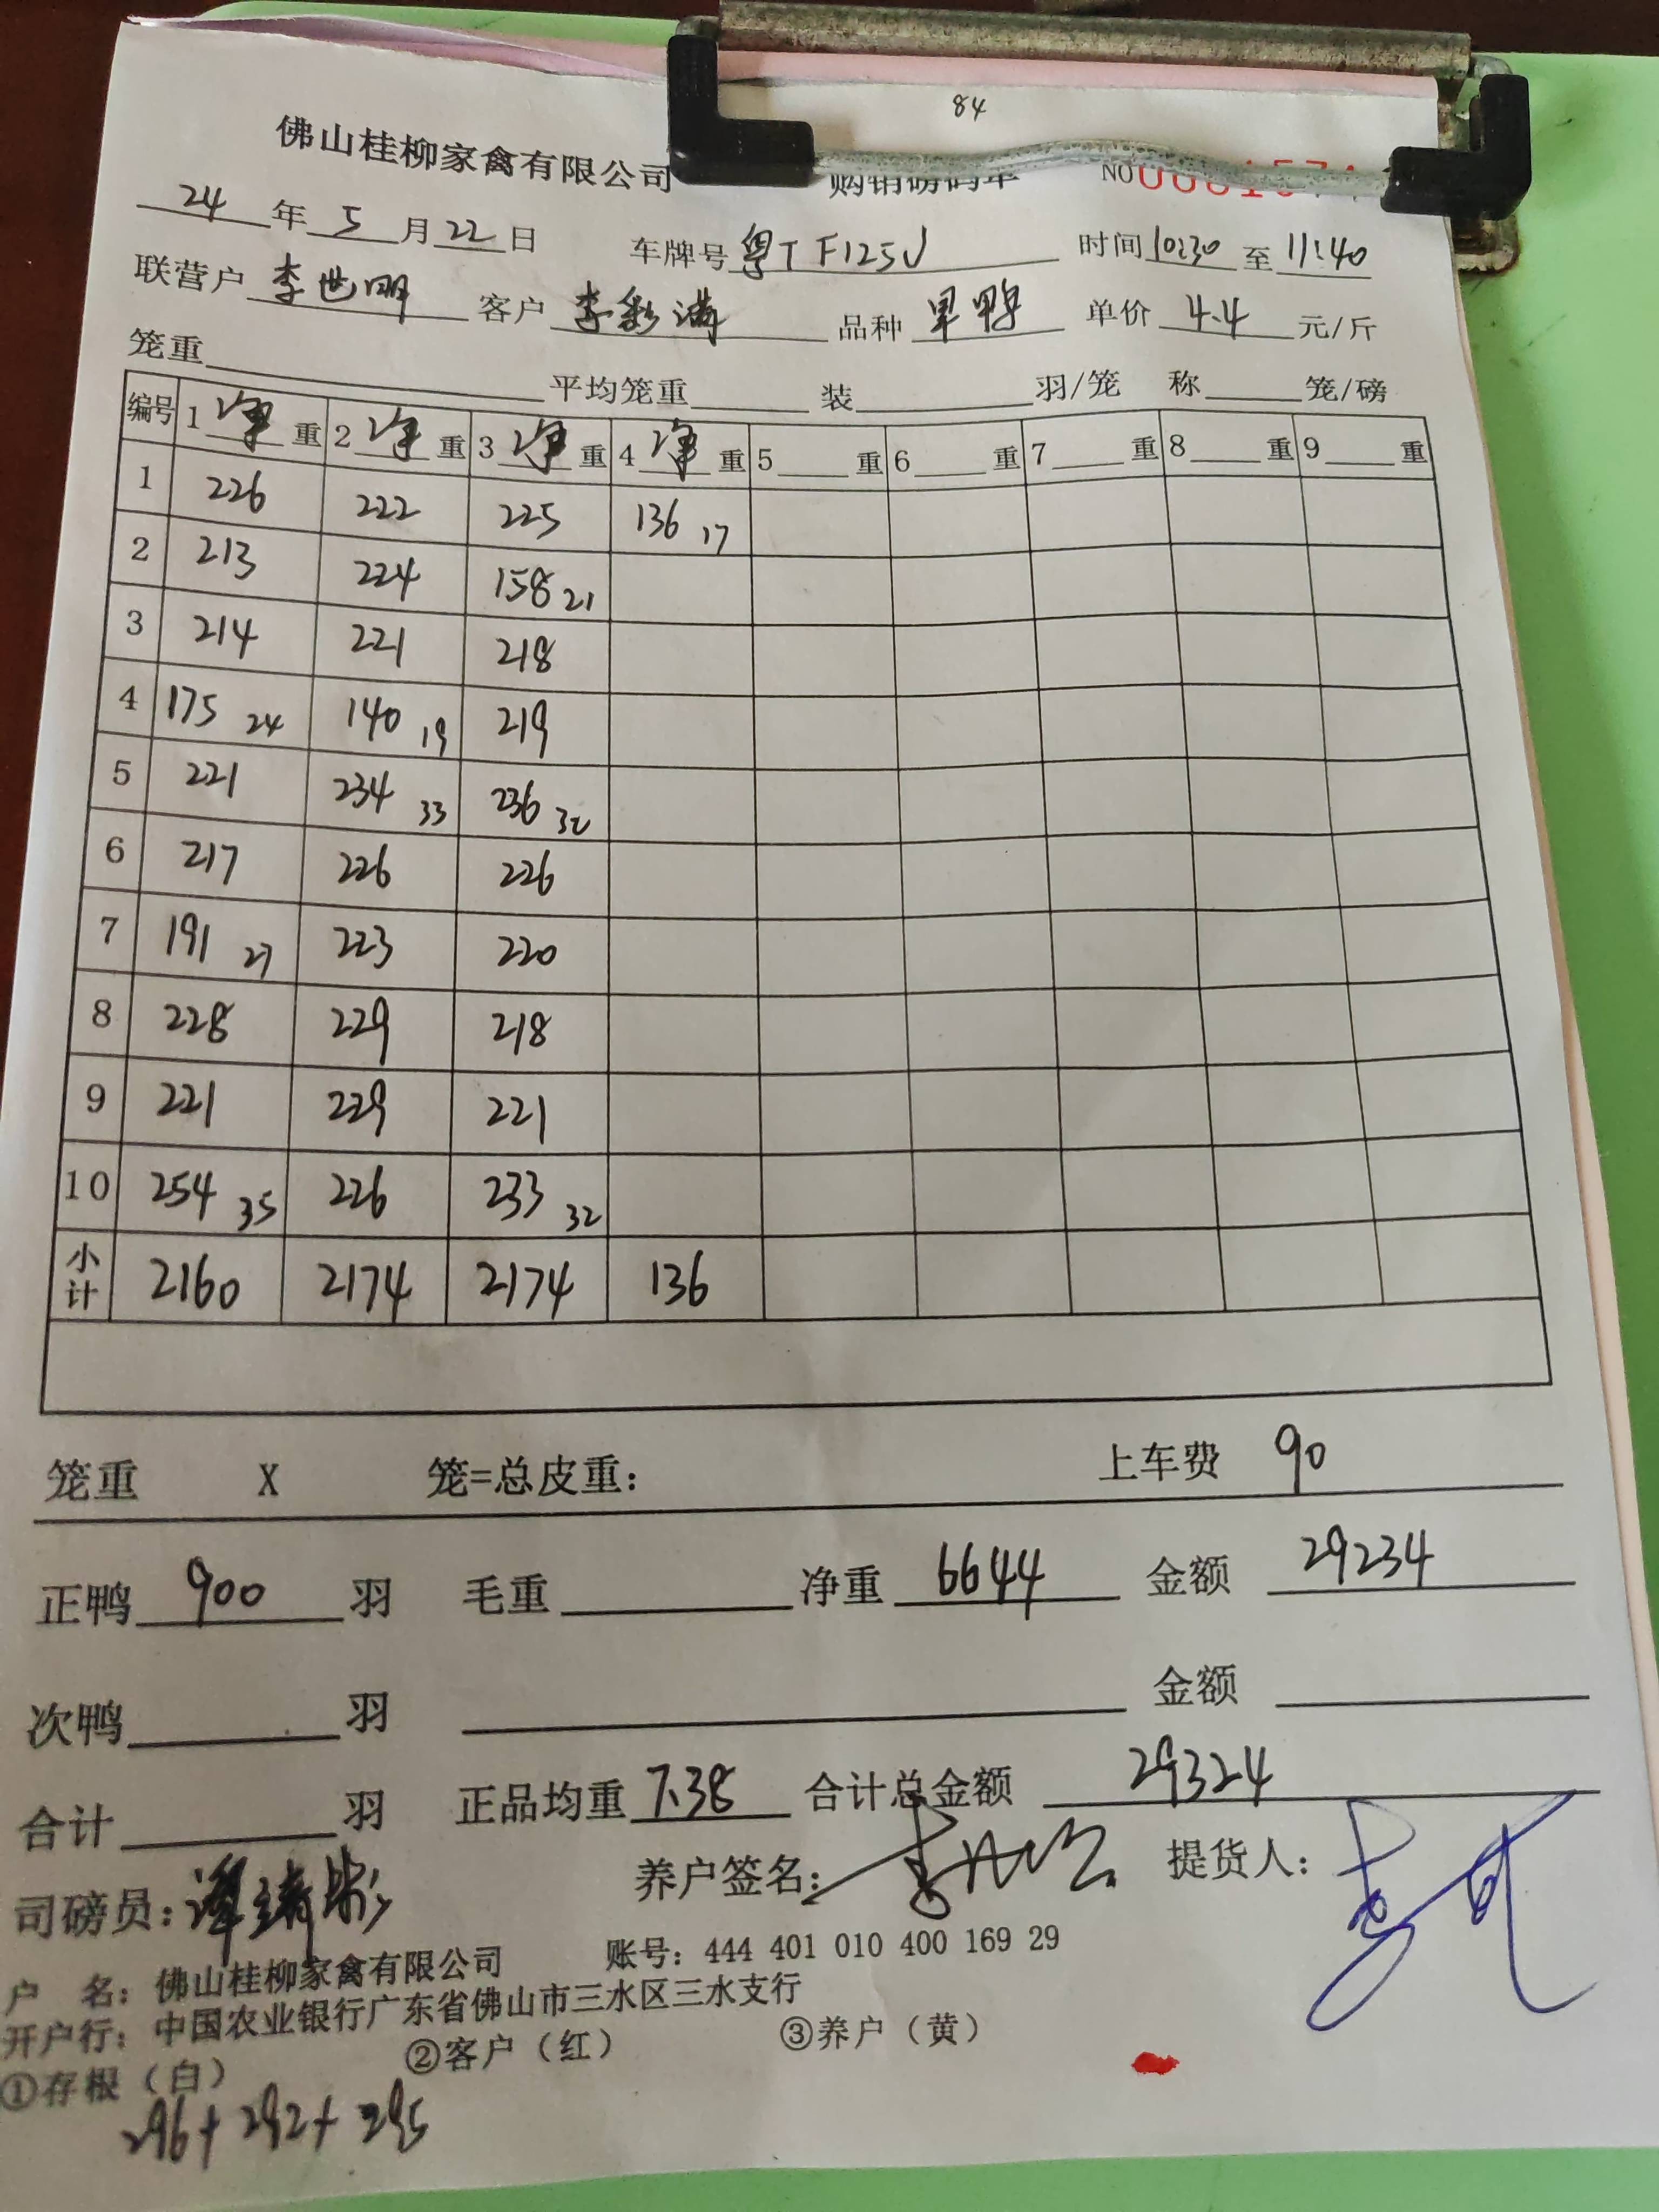 84
佛山桂柳家禽有限公司 购销磅码单 NO
24 年 5 月 22 日 车牌号 粤T F125J 时间 10:30 至 11:40
联营户 李世明 客户 李彩满 品种 旱鸭 单价 4.4 元/斤
笼重 平均笼重 装 羽/笼 称 笼/磅
编号 1 净 重 2 净 重 3 净 重 4 净 重 5 重 6 重 7 重 8 重 9 重
1 226 222 225 136 17
2 213 224 158 21
3 214 221 218
4 175 24 140 19 219
5 221 234 33 236 32
6 217 226 226
7 191 27 223 220
8 228 229 218
9 221 229 221
10 254 35 226 233 32
小计 2160 2174 2174 136
笼重 X 笼=总皮重: 上车费 90
正鸭 900 羽 毛重 净重 6644 金额 29234
次鸭 羽 金额
合计 羽 正品均重 7.38 合计总金额 29324
司磅员: 养户签名: 提货人:
户 名: 佛山桂柳家禽有限公司 账号: 444 401 010 400 169 29
开户行: 中国农业银行广东省佛山市三水区三水支行
①存根（白） ②客户（红） ③养户（黄）
296+292+295